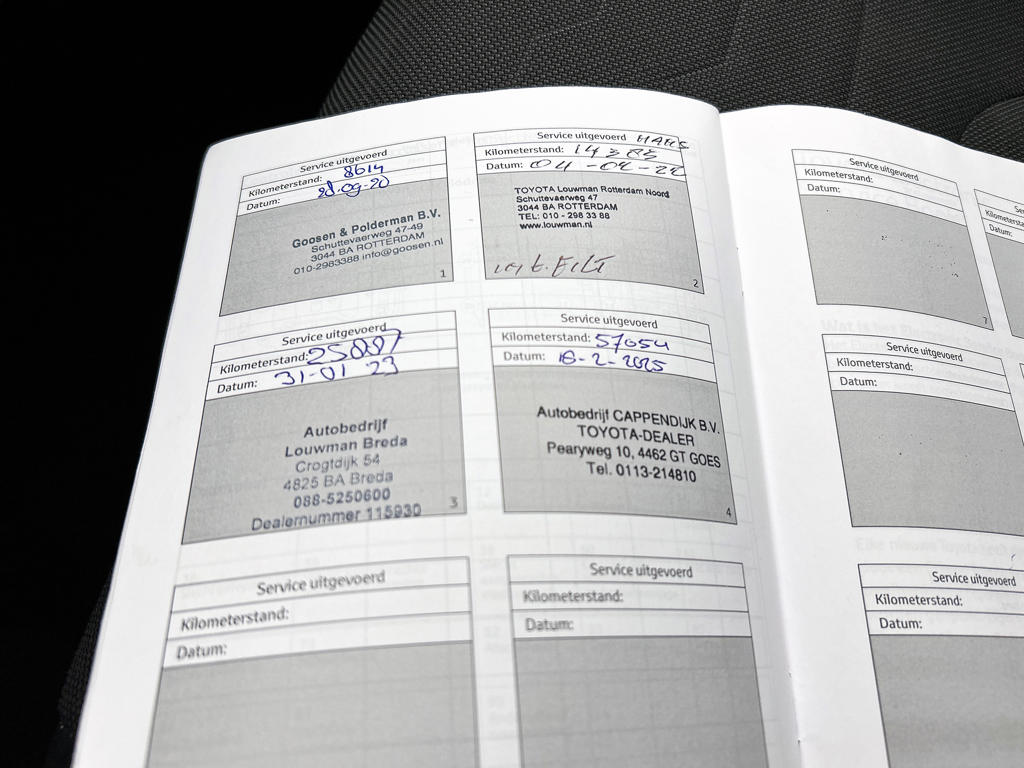 Service uitgevoerd
Kilometerstand: 8614
Datum: 28-09-20
Goosen & Polderman B.V.
Schuttevaerweg 47-49
3044 BA ROTTERDAM
010-2983388 info@goosen.nl
1
Service uitgevoerd
Kilometerstand:
Datum: 04-02-22
TOYOTA Louwman Rotterdam Noord
Schuttevaerweg 47
3044 BA ROTTERDAM
TEL: 010 - 298 33 88
www.louwman.nl
2
Service uitgevoerd
Kilometerstand: 25887
Datum: 31-01 23
Autobedrijf
Louwman Breda
Crogtdijk 54
4825 BA Breda
088-5250600
Dealernummer 115930
3
Service uitgevoerd
Kilometerstand: 57054
Datum: 18-2-2025
Autobedrijf CAPPENDIJK B.V.
TOYOTA-DEALER
Pearyweg 10, 4462 GT GOES
Tel. 0113-214810
4
Service uitgevoerd
Kilometerstand:
Datum:
Service uitgevoerd
Kilometerstand:
Datum:
Service uitgevoerd
Kilometerstand:
Datum:
7
Service uitgevoerd
Kilometerstand:
Datum:
Service uitgevoerd
Kilometerstand:
Datum:
Datum: